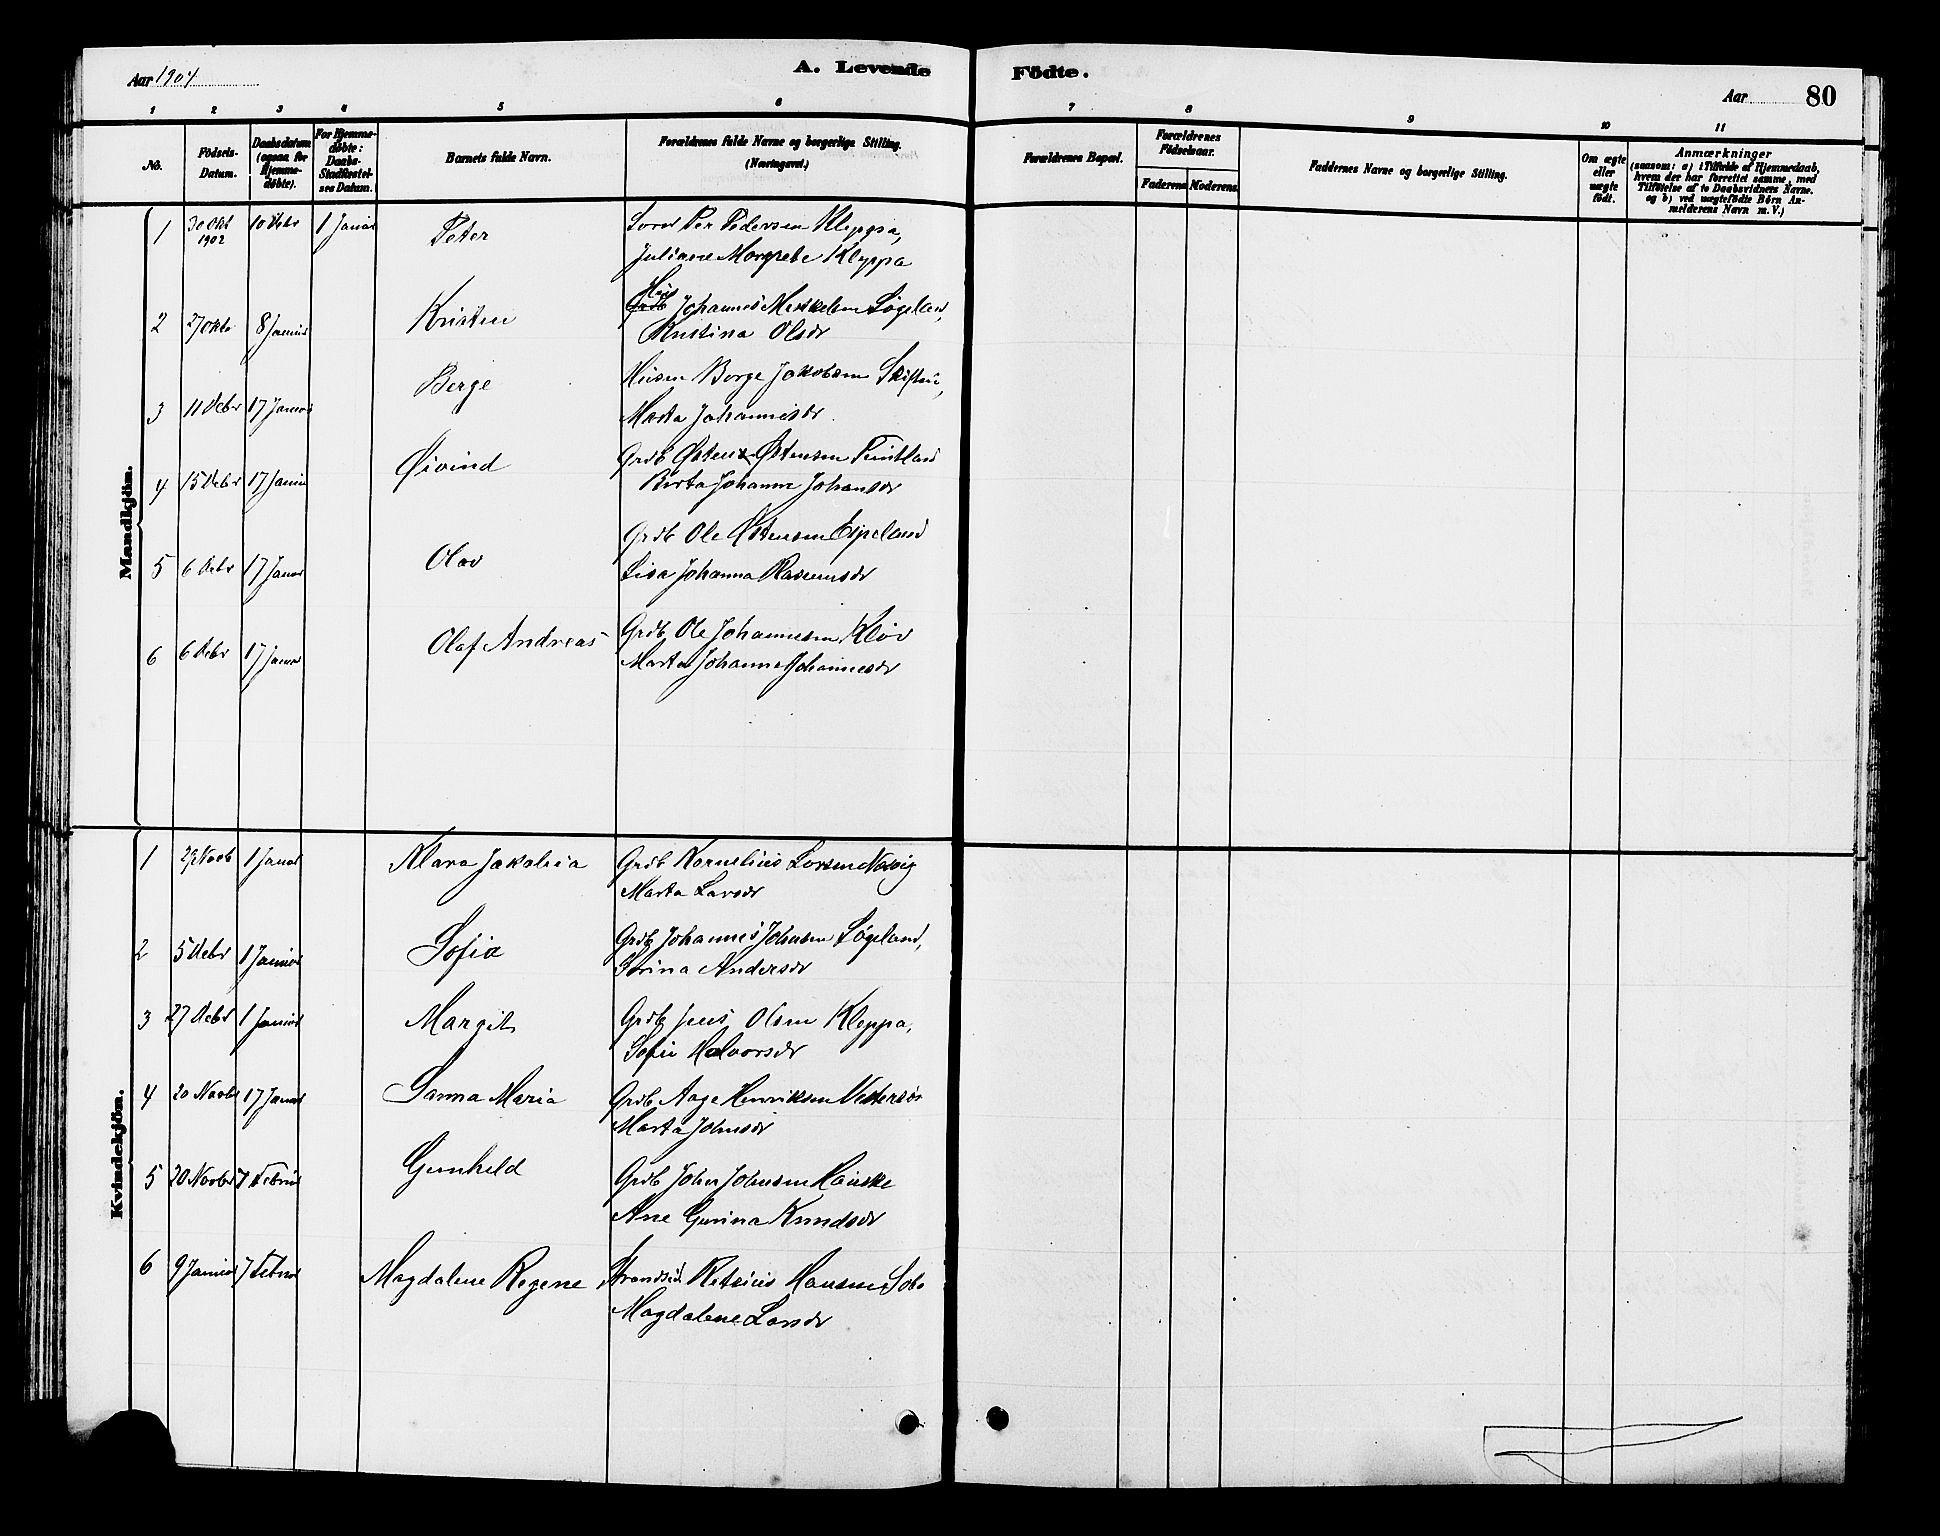 Aar 1904
A. Levende Födte.
Aar 80
1 2 3 4 5 6 7 8 9 10 11
No.
Födsels-Datum.
Daabsdatum (ogsaa for Hjemmedöbte).
For Hjemmedöbte: Daabs-Stadfæstelses Datum.
Barnets fulde Navn.
Forældrenes fulde Navne og borgerlige Stilling.
(Næringsvei.)
Forældrenes Bopæl.
Forældrenes Födselsaar.
Faderens Moderens
Faddernes Navne og borgerlige Stilling.
Om ægte eller uægte födt.
Anmærkninger
(saasom: a) i Tilfælde af Hjemmedaab,
hvem der har forrettet samme, med
Tilföielse af to Daabsvidners Navne.
og b) ved uægtefödte Börn An-
melderens Navn m. V.)
Mandkjön.
1 30 Okt 1902 10 1 Januar Peter Per Pedersen Kleppa,
Juliane Margrebe Kleppa
2 27 Okt 8 Januar Kristen Johannes Søgeland,
Kristina Olsdr
3 11 Debr 17 Januar Berge Husm Borge Jakobsen
Marta Johannesdr.
4 15 Debr 17 Januar Øivind Grdb Østen Østensen Fintland
Berta Johanne Johansdr
5 6 Debr 17 Januar Olav Grdb Ole Østensen Espeland
Lisa Johanna Rasmusdr
6 6 Debr 17 Januar Olaf Andreas Grdb Ole Johannesen Kløv
Marta Johanne Johannesdr
Kvindekjön.
1 29 Novb 1 Januar Klara Jakobia Grdb Kornelius Larsen
Marta Larsdr
2 5 Debr 1 Januar Sofia Grdb Johannes Johnsen Søgeland,
Serina Andersdr
3 27 Debr 1 Januar Margit Grdb Jens Olsen Kleppa,
Sofie Halvorsdr
4 20 Novbr 17 Januar Sanna Maria Grdb Aage Henriksen
Marta Johnsdr
5 20 Novbr 7 Februar Gunhild Grdb John Johnsen Hauske
Ane Gurina Knudsdr
6 9 Januar 7 Februar Magdalene Regene Strandsid. Retsius Hansen
Magdalene Larsdr